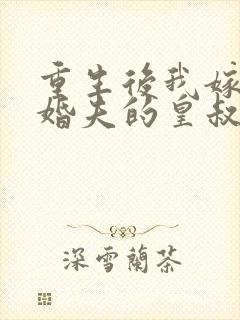 重生後我嫁
婚夫的皇叔
深雪蘭茶